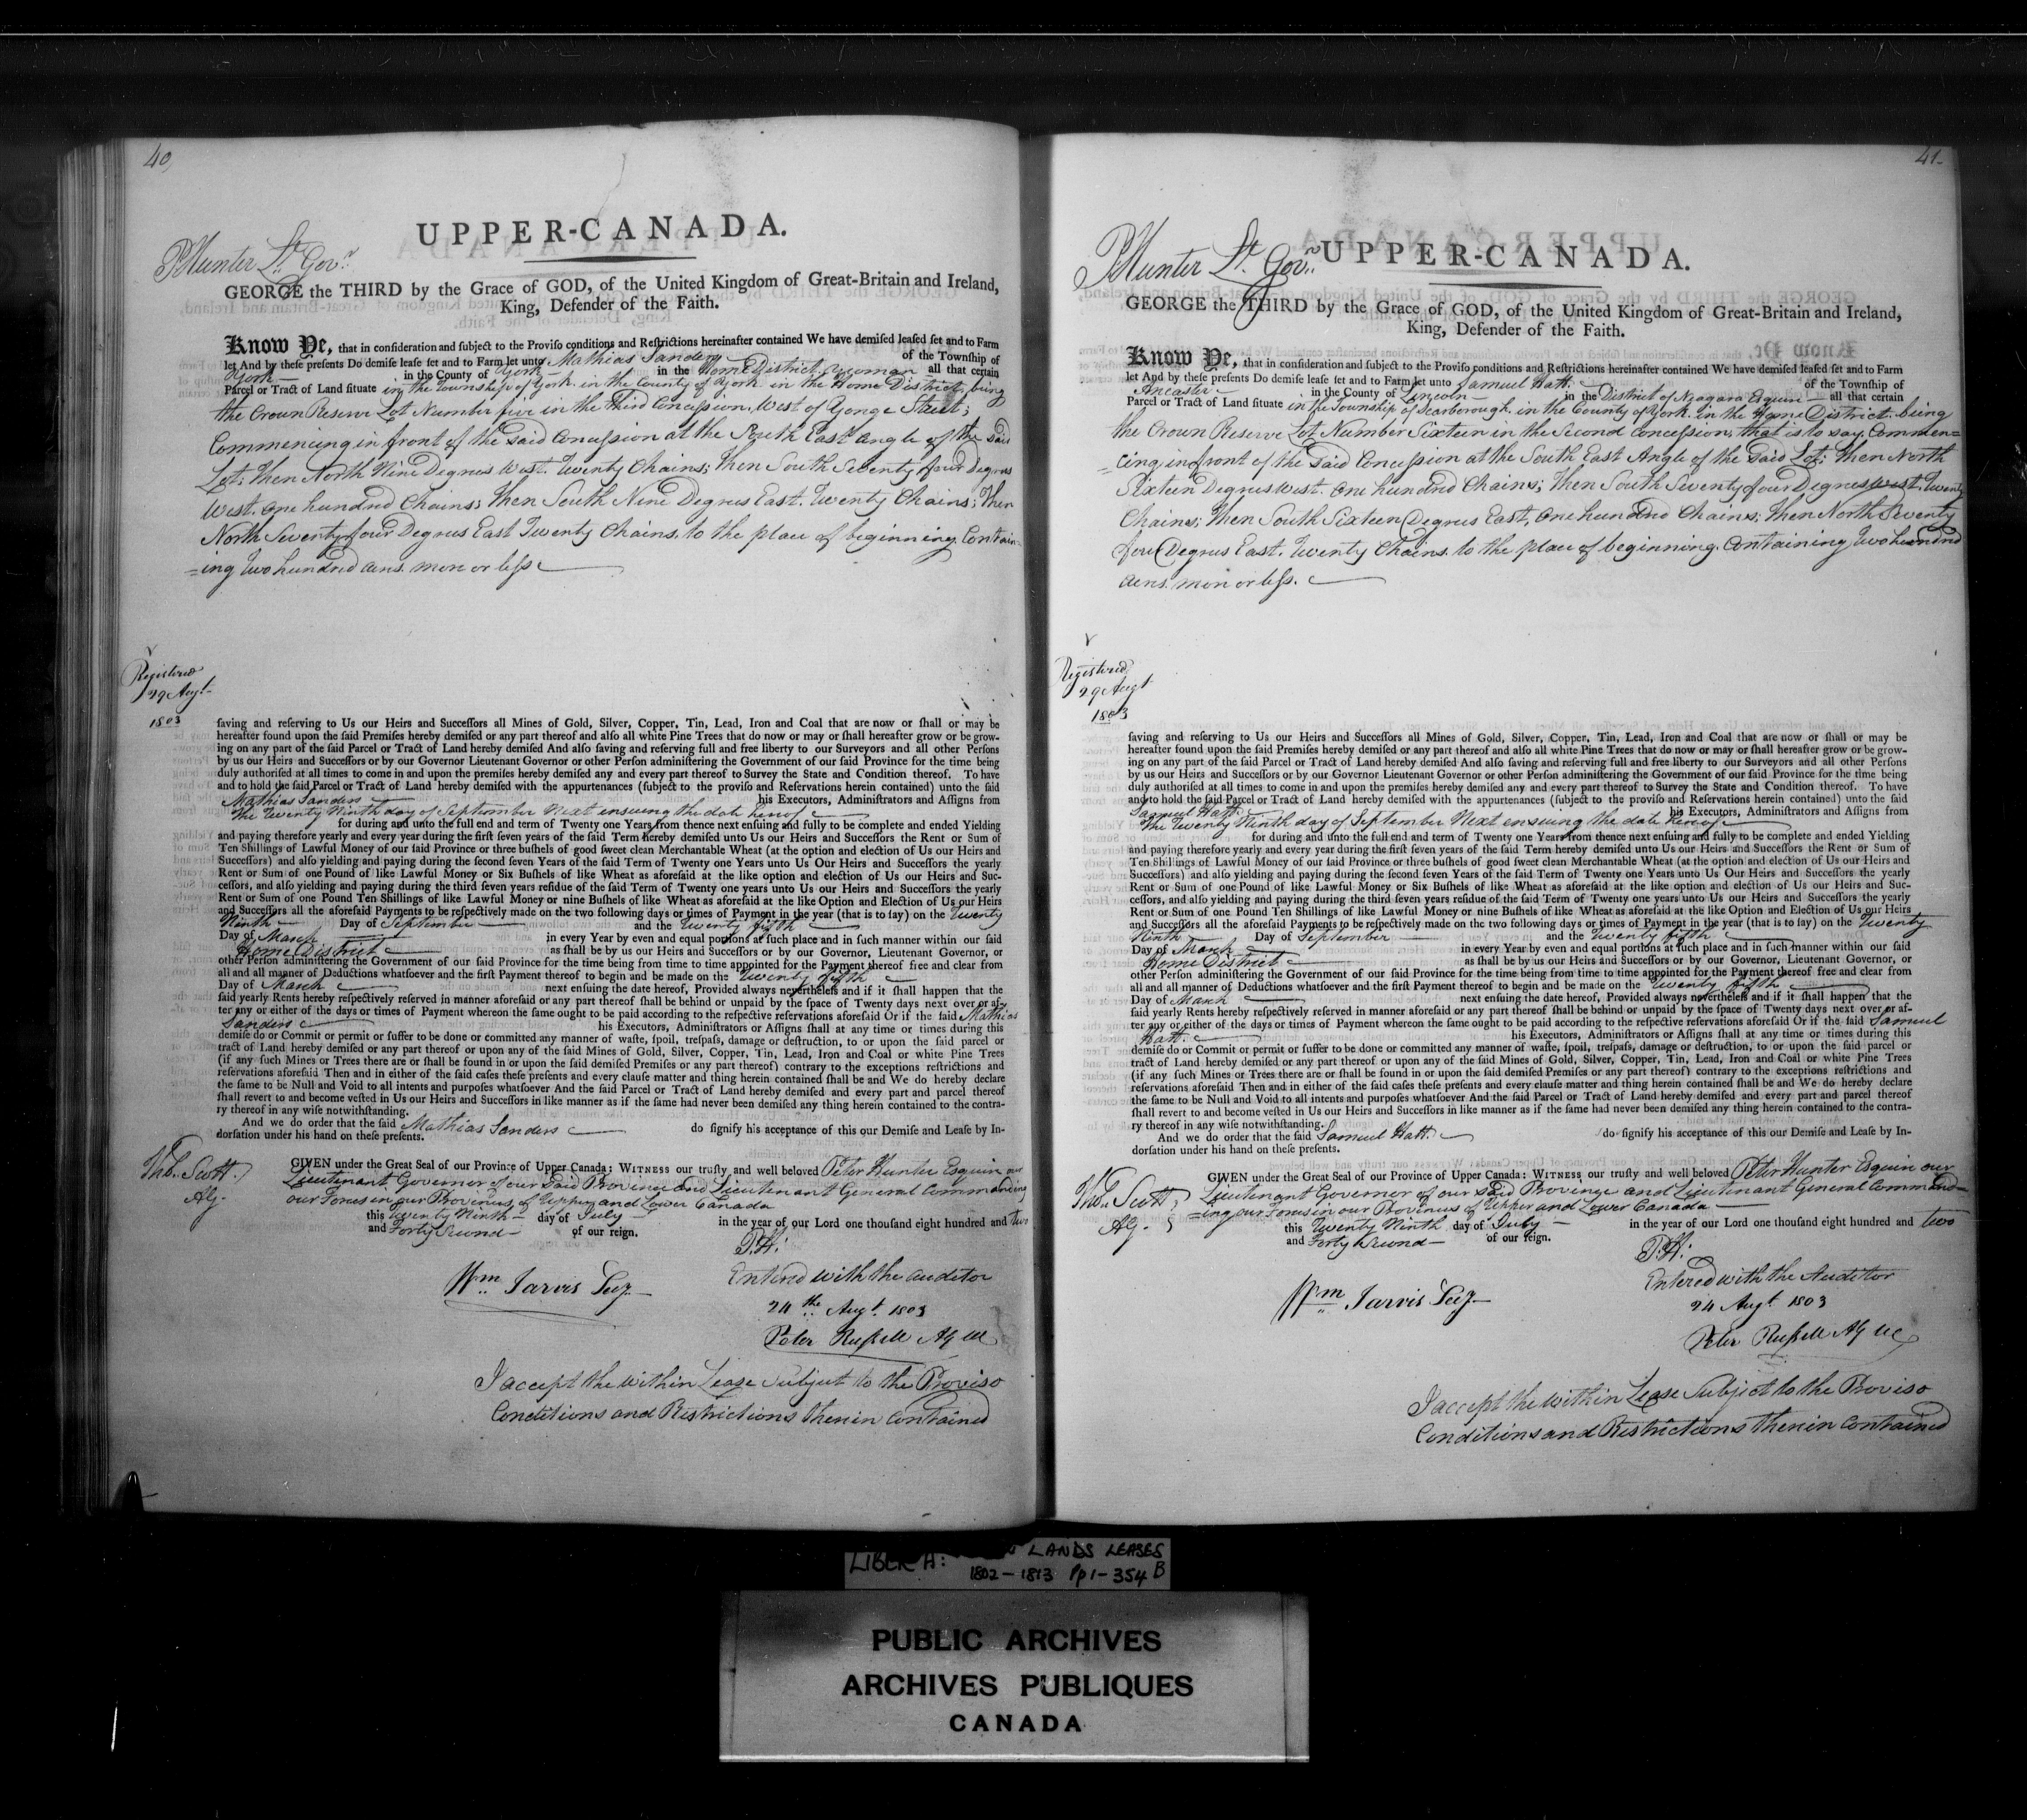 40
UPPER-CANADA.
P Hunter Lt. Govr.
GEORGE the THIRD by the Grace of GOD, of the United Kingdom of Great-Britain and Ireland,
King, Defender of the Faith.
Know Ye, that in consideration and subject to the Proviso conditions and Restrictions hereinafter contained We have demised leased set and to Farm
let And by these presents Do demise lease set and to Farm let unto Mathias Sanders of the Township of
York in the County of York in the Home District Yeoman all that certain
Parcel or Tract of Land situate in the Township of York in the County of York in the Home District, being
the Crown Reserve Lot Number five in the Third Concession, West of Yonge Street;
Commencing in front of the said Concession at the South East angle of the said
Lot; Then North Nine Degrees West. Twenty Chains; Then South Seventy four Degrees
West. One hundred Chains; Then South Nine Degrees East. Twenty Chains; Then
North Seventy four Degrees East Twenty Chains, to the place of beginning, Contain-
=ing Two hundred acres more or less
Registered
29 Augt.
1803
saving and reserving to Us our Heirs and Successors all Mines of Gold, Silver, Copper, Tin, Lead, Iron and Coal that are now or shall or may be
hereafter found upon the said Premises hereby demised or any part thereof and also all white Pine Trees that do now or may or shall hereafter grow or be grow-
ing on any part of the said Parcel or Tract of Land hereby demised And also saving and reserving full and free liberty to our Surveyors and all other Persons
by us our Heirs and Successors or by our Governor Lieutenant Governor or other Person administering the Government of our said Province for the time being
duly authorised at all times to come in and upon the premises hereby demised any and every part thereof to Survey the State and Condition thereof. To have
and to hold the said Parcel or Tract of Land hereby demised with the appurtenances (subject to the proviso and Reservations herein contained) unto the said
Mathias Sanders his Executors, Administrators and Assigns from
the Twenty Ninth day of September Next ensuing the date hereof
for during and unto the full end and term of Twenty one Years from thence next ensuing and fully to be complete and ended Yielding
and paying therefore yearly and every year during the first seven years of the said Term hereby demised unto Us our Heirs and Successors the Rent or Sum of
Ten Shillings of Lawful Money of our said Province or three bushels of good sweet clean Merchantable Wheat (at the option and election of Us our Heirs and
Successors) and also yielding and paying during the second seven Years of the said Term of Twenty one Years unto Us Our Heirs and Successors the yearly
Rent or Sum of one Pound of like Lawful Money or Six Bushels of like Wheat as aforesaid at the like option and election of Us our Heirs and Suc-
cessors, and also yielding and paying during the third seven years residue of the said Term of Twenty one years unto Us our Heirs and Successors the yearly
Rent or Sum of one Pound Ten Shillings of like Lawful Money or nine Bushels of like Wheat as aforesaid at the like Option and Election of Us our Heirs
and Successors all the aforesaid Payments to be respectively made on the two following days or times of Payment in the year (that is to say) on the Twenty
Ninth Day of September and the Twenty fifth
Day of March in every Year by even and equal portions at such place and in such manner within our said
Home District as shall be by us our Heirs and Successors or by our Governor, Lieutenant Governor, or
other Person administering the Government of our said Province for the time being from time to time appointed for the Payment thereof free and clear from
all and all manner of Deductions whatsoever and the first Payment thereof to begin and be made on the Twenty fifth
Day of March next ensuing the date hereof, Provided always nevertheless and if it shall happen that the
said yearly Rents hereby respectively reserved in manner aforesaid or any part thereof shall be behind or unpaid by the space of Twenty days next over or af-
ter any or either of the days or times of Payment whereon the same ought to be paid according to the respective reservations aforesaid Or if the said Mathias
Sanders his Executors, Administrators or Assigns shall at any time or times during this
demise do or Commit or permit or suffer to be done or committed any manner of waste, spoil, trespass, damage or destruction, to or upon the said parcel or
tract of Land hereby demised or any part thereof or upon any of the said Mines of Gold, Silver, Copper, Tin, Lead, Iron and Coal or white Pine Trees
(if any such Mines or Trees there are or shall be found in or upon the said demised Premises or any part thereof) contrary to the exceptions restrictions and
reservations aforesaid Then and in either of the said cases these presents and every clause matter and thing herein contained shall be and We do hereby declare
the same to be Null and Void to all intents and purposes whatsoever And the said Parcel or Tract of Land hereby demised and every part and parcel thereof
shall revert to and become vested in Us our Heirs and Successors in like manner as if the same had never been demised any thing herein contained to the contra-
ry thereof in any wise notwithstanding.
And we do order that the said Mathias Sanders do signify his acceptance of this our Demise and Lease by In-
dorsation under his hand on these presents.
Thos. Scott.
A.G.
GIVEN under the Great Seal of our Province of Upper Canada: WITNESS our trusty and well beloved Peter Hunter Esquire our
Lieutenant Governor of our said Province and Lieutenant General Commanding
our Forces in our Provinces of Upper and Lower Canada
this Twenty Ninth day of July in the year of our Lord one thousand eight hundred and two
and Forty Second of our reign.
P.H:
Wm Jarvis Secy
Entered with the Auditor
24th Augt. 1803
Peter Russell
I accept the within Lease Subject to the Proviso
Conditions and Restrictions therein contained
41
UPPER-CANADA.
P Hunter Lt. Govr.
GEORGE the THIRD by the Grace of GOD, of the United Kingdom of Great-Britain and Ireland,
King, Defender of the Faith.
Know Ye, that in consideration and subject to the Proviso conditions and Restrictions hereinafter contained We have demised leased set and to Farm
let And by these presents Do demise lease set and to Farm let unto Samuel Hatt of the Township of
Ancaster in the County of Lincoln in the District of Niagara Esquire all that certain
Parcel or Tract of Land situate in the Township of Scarborough, in the County of York in the Home District. being
the Crown Reserve Lot Number Sixteen in the Second Concession, that is to say, Commen=
=cing in front of the said Concession at the South East Angle of the said Lot; Then North
Sixteen Degrees West. One hundred Chains; Then South Seventy four Degrees West. Twenty
Chains; Then South Sixteen Degrees East, One hundred Chains; Then North Seventy
four Degrees East. Twenty Chains. to the place of beginning. Containing Two hundred
acres. more or less.
Registered
29 Augt
1803
saving and reserving to Us our Heirs and Successors all Mines of Gold, Silver, Copper, Tin, Lead, Iron and Coal that are now or shall or may be
hereafter found upon the said Premises hereby demised or any part thereof and also all white Pine Trees that do now or may or shall hereafter grow or be grow-
ing on any part of the said Parcel or Tract of Land hereby demised And also saving and reserving full and free liberty to our Surveyors and all other Persons
by us our Heirs and Successors or by our Governor Lieutenant Governor or other Person administering the Government of our said Province for the time being
duly authorised at all times to come in and upon the premises hereby demised any and every part thereof to Survey the State and Condition thereof. To have
and to hold the said Parcel or Tract of Land hereby demised with the appurtenances (subject to the proviso and Reservations herein contained) unto the said
Samuel Hatt his Executors, Administrators and Assigns from
the Twenty Ninth day of September Next ensuing the date hereof
for during and unto the full end and term of Twenty one Years from thence next ensuing and fully to be complete and ended Yielding
and paying therefore yearly and every year during the first seven years of the said Term hereby demised unto Us our Heirs and Successors the Rent or Sum of
Ten Shillings of Lawful Money of our said Province or three bushels of good sweet clean Merchantable Wheat (at the option and election of Us our Heirs and
Successors) and also yielding and paying during the second seven Years of the said Term of Twenty one Years unto Us Our Heirs and Successors the yearly
Rent or Sum of one Pound of like Lawful Money or Six Bushels of like Wheat as aforesaid at the like option and election of Us our Heirs and Suc-
cessors, and also yielding and paying during the third seven years residue of the said Term of Twenty one years unto Us our Heirs and Successors the yearly
Rent or Sum of one Pound Ten Shillings of like Lawful Money or nine Bushels of like Wheat as aforesaid at the like Option and Election of Us our Heirs
and Successors all the aforesaid Payments to be respectively made on the two following days or times of Payment in the year (that is to say) on the Twenty
Ninth Day of September and the Twenty fifth
Day of March in every Year by even and equal portions at such place and in such manner within our said
Home District as shall be by us our Heirs and Successors or by our Governor, Lieutenant Governor, or
other Person administering the Government of our said Province for the time being from time to time appointed for the Payment thereof free and clear from
all and all manner of Deductions whatsoever and the first Payment thereof to begin and be made on the Twenty fifth
Day of March next ensuing the date hereof, Provided always nevertheless and if it shall happen that the
said yearly Rents hereby respectively reserved in manner aforesaid or any part thereof shall be behind or unpaid by the space of Twenty days next over or af-
ter any or either of the days or times of Payment whereon the same ought to be paid according to the respective reservations aforesaid Or if the said Samuel
Hatt. his Executors, Administrators or Assigns shall at any time or times during this
demise do or Commit or permit or suffer to be done or committed any manner of waste, spoil, trespass, damage or destruction, to or upon the said parcel or
tract of Land hereby demised or any part thereof or upon any of the said Mines of Gold, Silver, Copper, Tin, Lead, Iron and Coal or white Pine Trees
(if any such Mines or Trees there are or shall be found in or upon the said demised Premises or any part thereof) contrary to the exceptions restrictions and
reservations aforesaid Then and in either of the said cases these presents and every clause matter and thing herein contained shall be and We do hereby declare
the same to be Null and Void to all intents and purposes whatsoever And the said Parcel or Tract of Land hereby demised and every part and parcel thereof
shall revert to and become vested in Us our Heirs and Successors in like manner as if the same had never been demised any thing herein contained to the contra-
ry thereof in any wise notwithstanding.
And we do order that the said Samuel Hatt. do signify his acceptance of this our Demise and Lease by In-
dorsation under his hand on these presents.
Thos. Scott
A.G.
GIVEN under the Great Seal of our Province of Upper Canada: WITNESS our trusty and well beloved Peter Hunter Esquire our
Lieutenant Governor of our said Province and Lieutenant General Command=
=ing our Forces in our Provinces of Upper and Lower Canada
this Twenty Ninth day of July in the year of our Lord one thousand eight hundred and two
and Forty Second of our reign.
P.H:
Wm Jarvis Secy
Entered with the Auditor
24 Augt. 1803
Peter Russell
I accept the within Lease Subject to the Proviso
Conditions and Restrictions therein contained
LIBER A: LANDS LEASES
1802-1813 Pp 1-354 B
PUBLIC ARCHIVES
ARCHIVES PUBLIQUES
CANADA